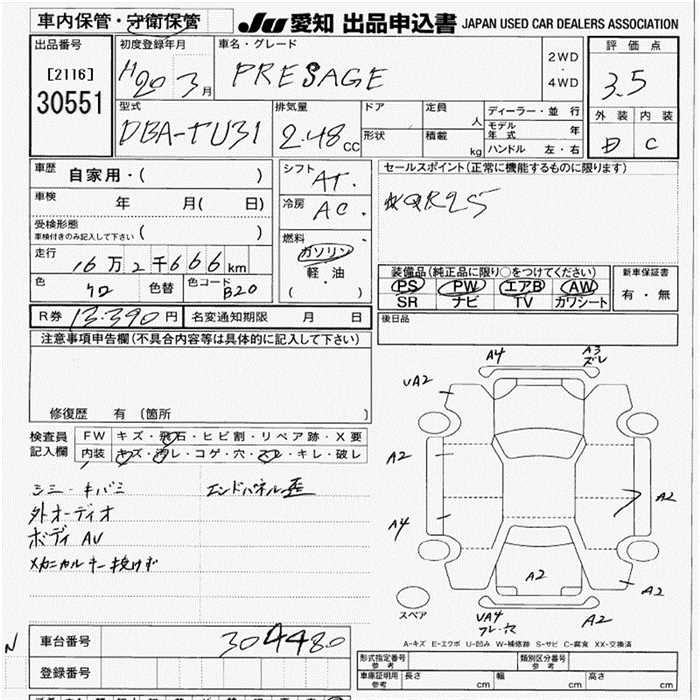 車内保管・守衛保管
JU 愛知 出品申込書 JAPAN USED CAR DEALERS ASSOCIATION
出品番号
[2116]
30551
初度登録年月
H20 3月
車名・グレード
PRESAGE
2WD
・
4WD
評価点
3.5
外装 内装
D C
型式
DBA-TU31
排気量
2.48cc
ドア
形状
定員 人
積載 kg
ディーラー・並行
モデル年式 年
ハンドル 左・右
車歴 自家用・( )
車検 年 月( 日)
受検形態
車検付きのみ記入して下さい ( )
走行 16万2千666km
色 クロ 色替 色コード B20
シフト AT.
冷房 AC.
燃料
ガソリン
軽・油
( )
セールスポイント(正常に機能するものに限ります)
装備品(純正品に限り○をつけてください)
PS PW エアB AW
SR ナビ TV カワシート
新車保証書
有・無
R券 13.390円 名変通知期限 月 日
後日品
注意事項申告欄(不具合内容等は具体的に記入して下さい)
修復歴 有(箇所 )
検査員
記入欄
FW キズ・飛石・ヒビ割・リペア跡・X要
内装 キズ・汚レ・コゲ・穴・スレ・キレ・破レ
シミ・キバミ エンドパネル歪
外オーディオ
ボディ AU
メカニカルキー挽けず
A4
A3
ズレ
UA2
A2
A2
A4
A2
A2
スペア
UA4
ワレ・穴
A2
A-キズ E-エクボ U-凹み W-補修跡 S-サビ C-腐食 XX-交換済
N
車台番号 304480
登録番号
形式指定番号
参考
類別区分番号
参考
車庫証明用
参考
長さ cm 幅 cm 高さ cm